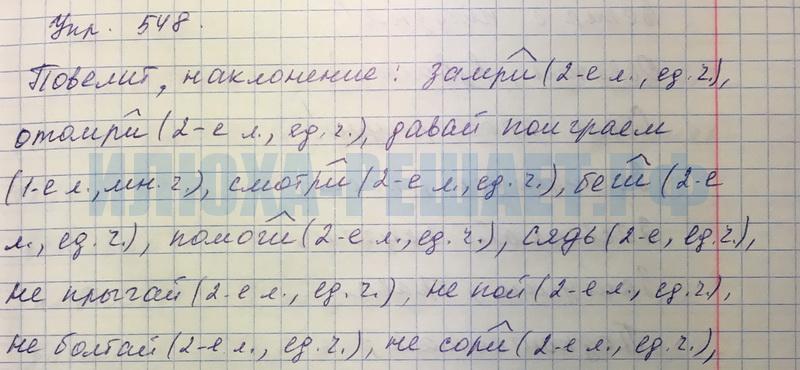 Упр. 548.
Повелит, наклонение: замри (2-е л., ед.ч.),
отомри (2-е л., ед.ч.), давай поиграем
(1-е л., мн.ч.), смотри (2-е л., ед.ч.), беги (2-е
л., ед.ч.), помоги (2-е л., ед.ч.), сядь (2-е, ед.ч.),
не прыгай (2-е л., ед.ч.), не пой (2-е л., ед.ч.),
не болтай (2-е л., ед.ч.), не сори (2-е л., ед.ч.),
ИЛЮХА-РЕШАЕТ.РФ